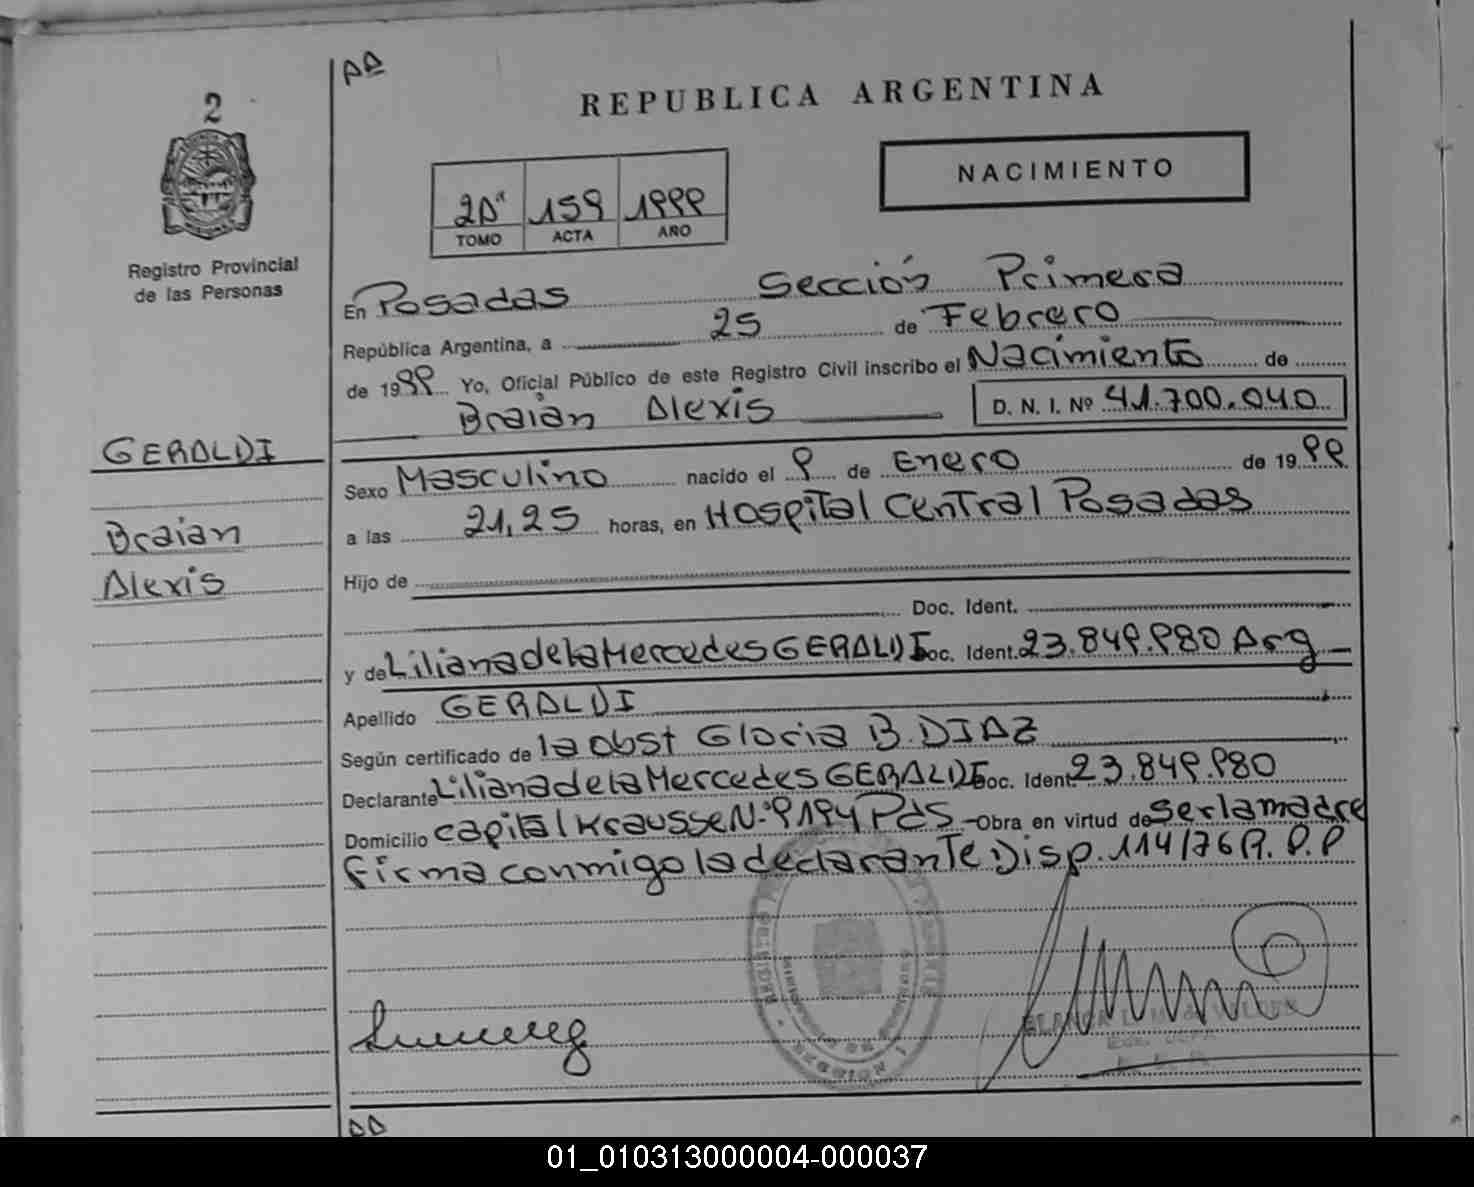 AA
REPUBLICA ARGENTINA
2
NACIMIENTO
2Aª 159 1999
TOMO ACTA AÑO
Registro Provincial
de las Personas
En Posadas Sección Primera
República Argentina, a 25 de Febrero
de 1999 Yo, Oficial Público de este Registro Civil inscribo el Nacimiento de
Braian Alexis D. N. I. Nº 41.700.040
GERALDI
Sexo Masculino nacido el 9 de Enero de 1999
Braian
a las 21,25 horas, en Hospital Central Posadas
Alexis
Hijo de
Doc. Ident.
y de Liliana de la Mercedes GERALDI Doc. Ident. 23.849.980 Arg
Apellido GERALDI
Según certificado de la obst Gloria B. DIAZ
Declarante Liliana de la Mercedes GERALDI Doc. Ident. 23.849.980
Domicilio capital Krausse N.º 9194 Pds - Obra en virtud de ser la madre
firma conmigo la declarante Disp. 114/76 R.P.P
BLANCA
AA
01_010313000004-000037